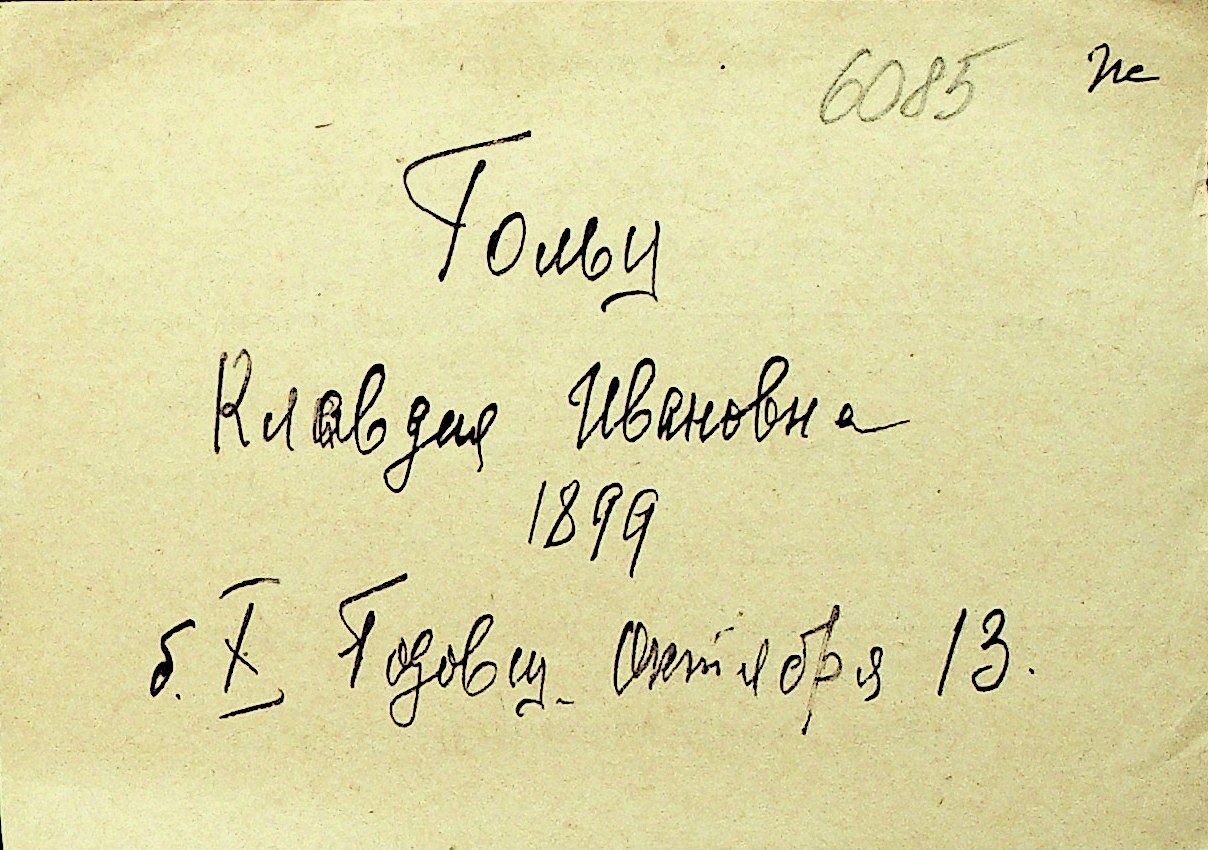 6085
Гольц
Клавдия Ивановна
1899
б. X Годовщ. Октября 13.